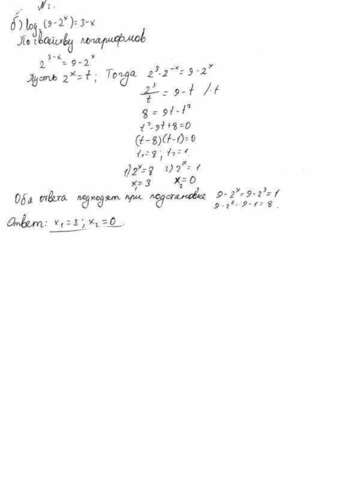 N 1.
б) log₂(9-2ˣ)=3-x
По свойству логарифмов
2³⁻ˣ=9-2ˣ
Пусть 2ˣ=t; Тогда 2³·2⁻ˣ=9-2ˣ
2³/t = 9-t /·t
8=9t-t²
t²-9t+8=0
(t-8)(t-1)=0
t₁=8; t₂=1
1) 2ˣ=8 2) 2ˣ=1
x₁=3 x₂=0
Оба ответа подходят при подстановке 9-2ˣ=9-2³=1
9-2ˣ=9-1=8.
Ответ: x₁=3; x₂=0